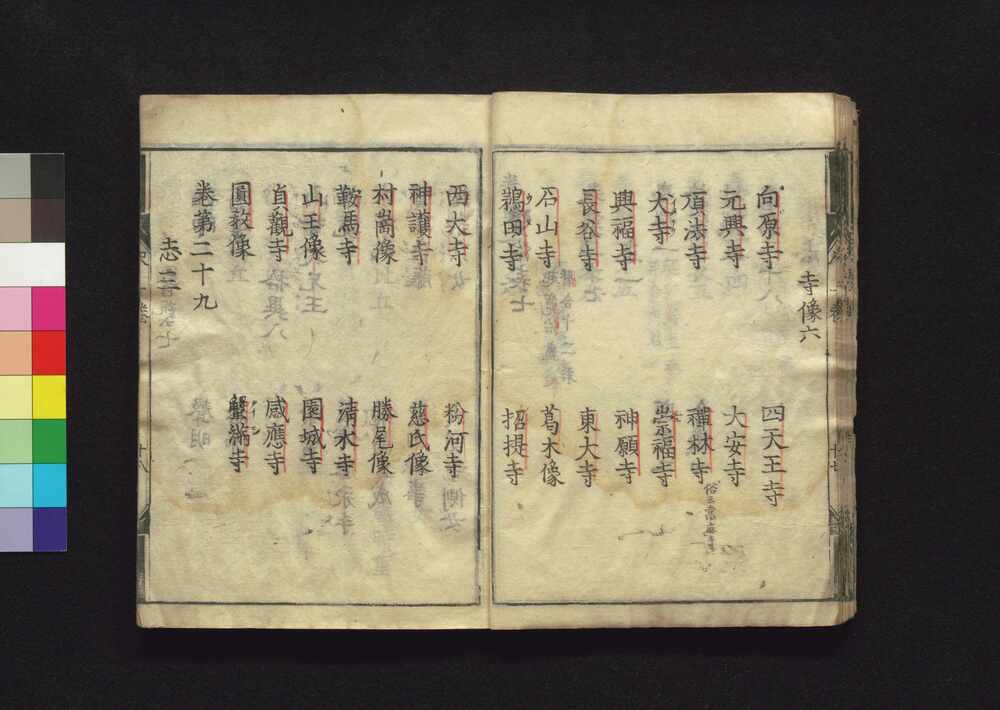 寺像六
向原寺 四天王寺
元興寺 大安寺
頂法寺 禪林寺 俗云當麻寺
犬寺 崇福寺
興福寺 神願寺
長谷寺 東大寺
石山寺 葛木像
鵜田寺 招提寺
西大寺 粉河寺
神護寺 慈氏像
村崗像 勝尾像
鞍馬寺 清水寺
山王像 園城寺
貞觀寺 感應寺
圓教像 蟹滿寺
卷第二十九
志三